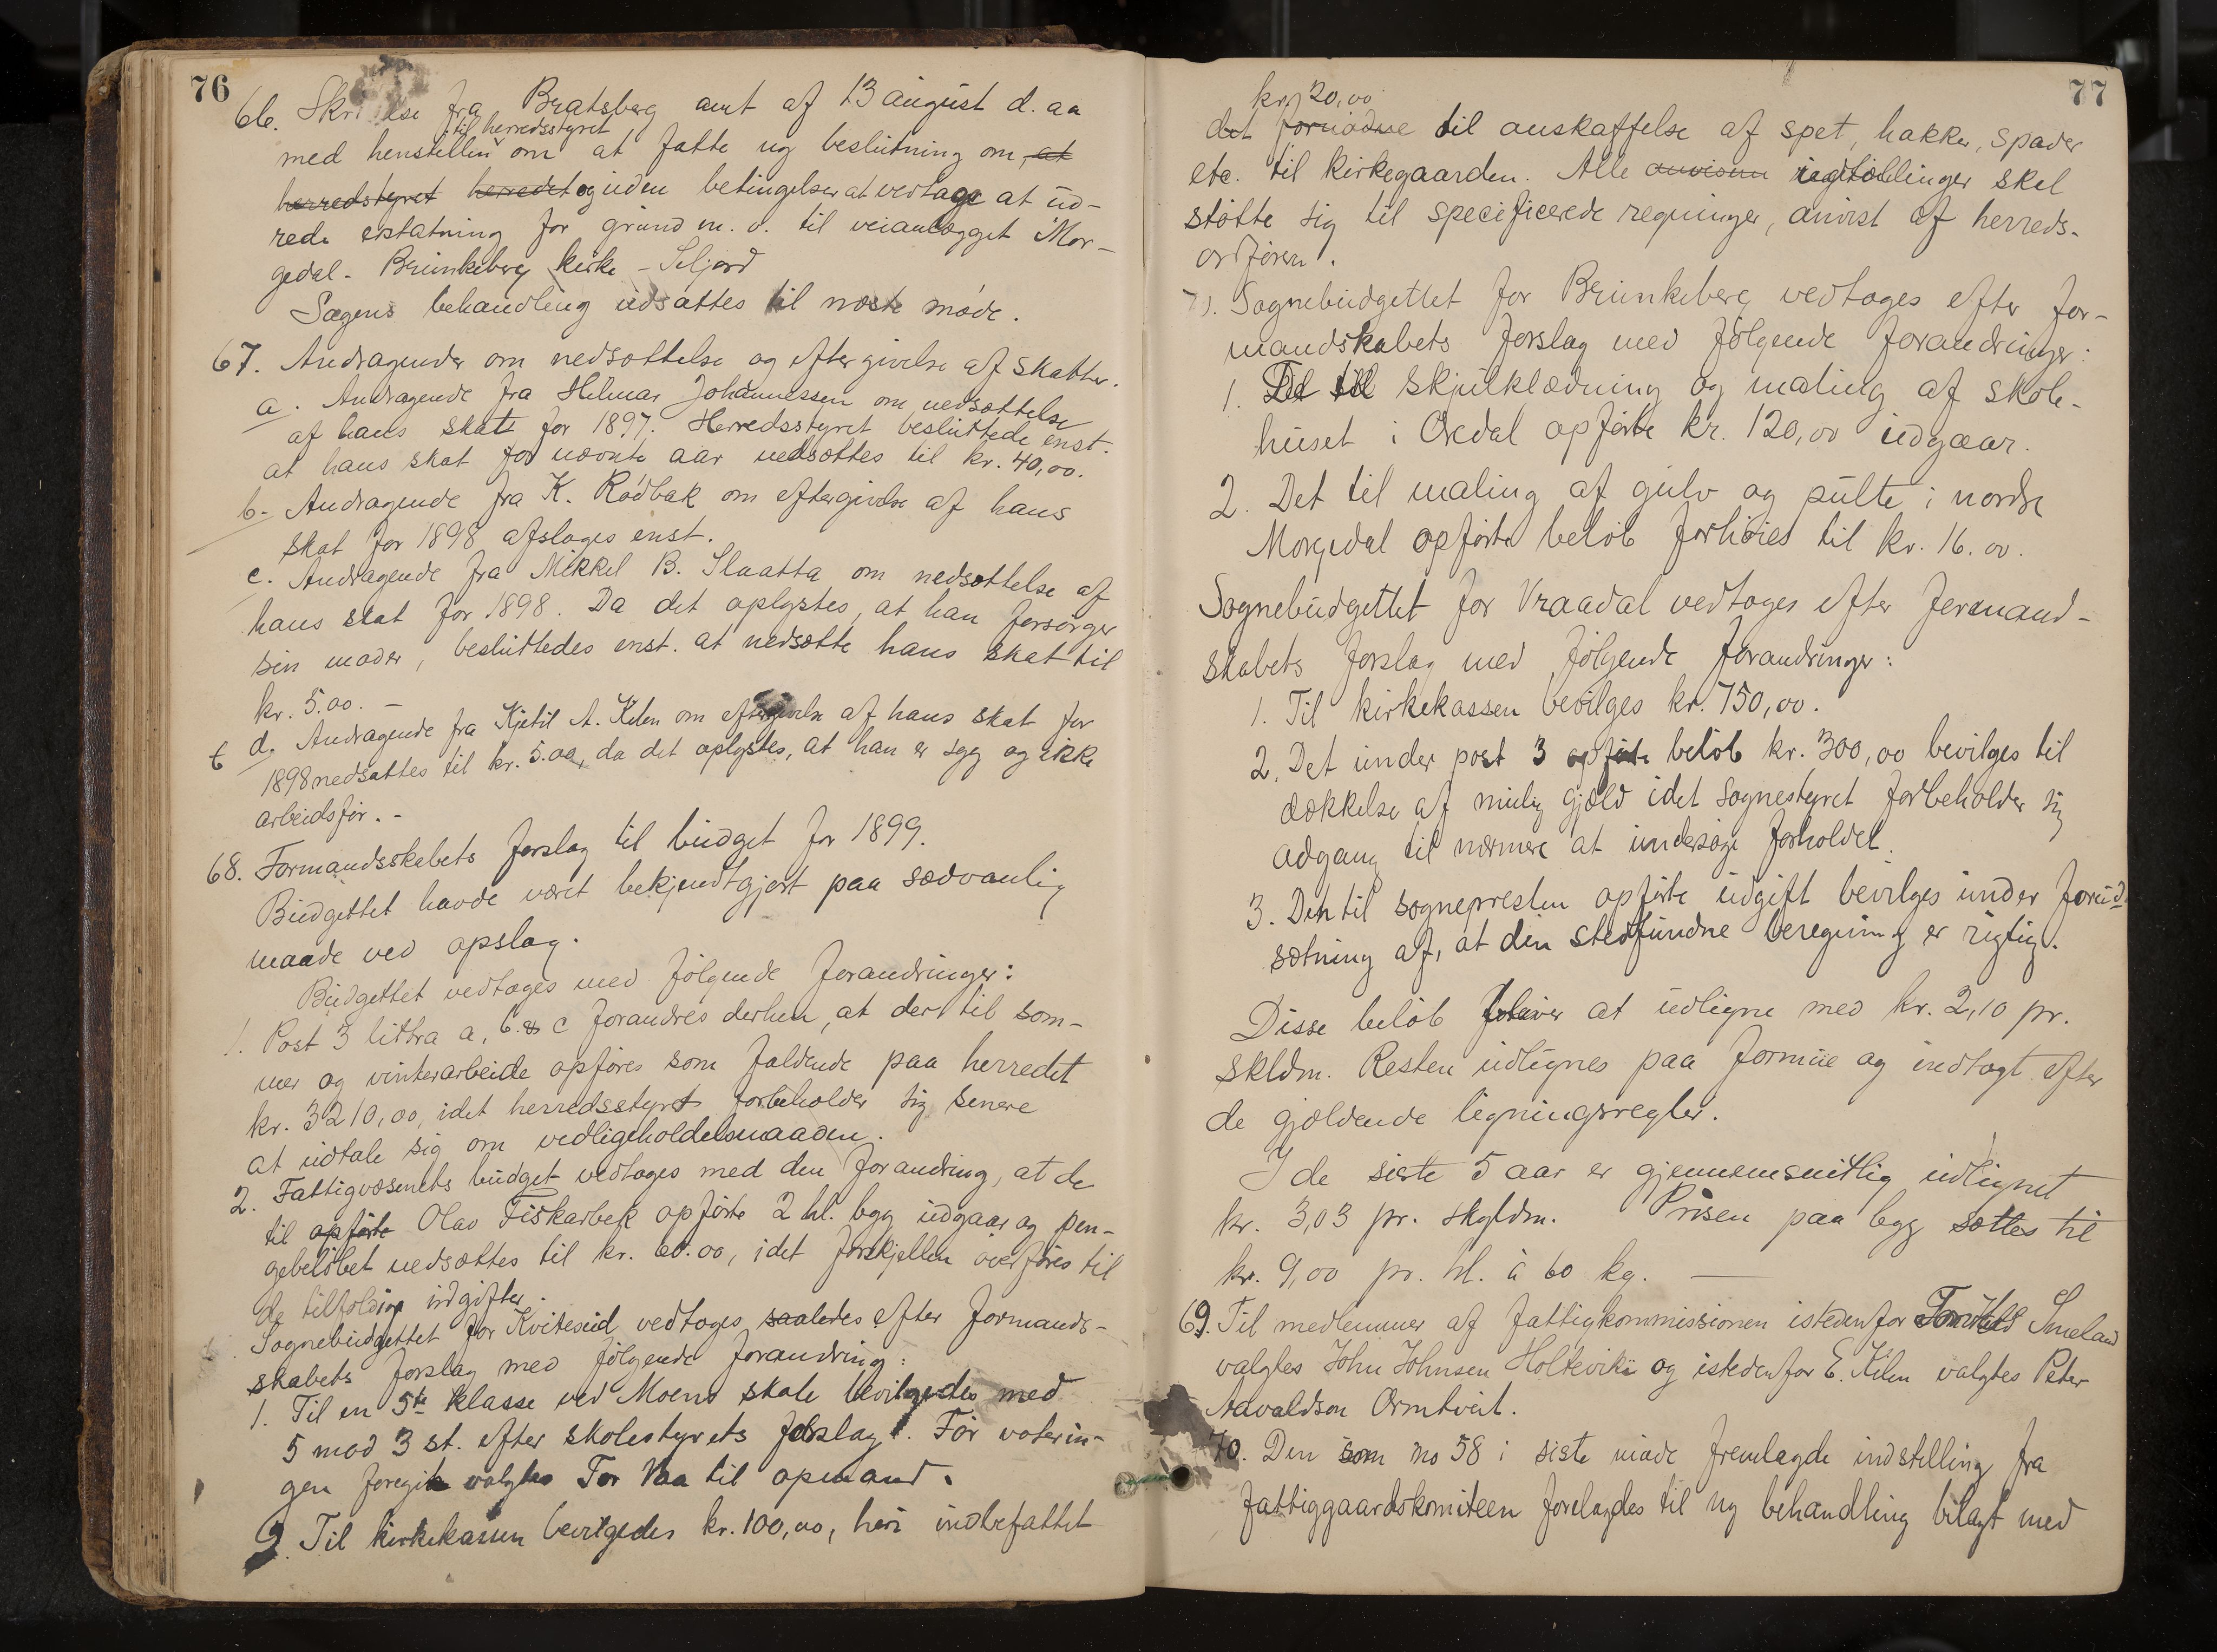 76
66. Skrivelse fra Bratsberg amt af 13 august d. aa
til herredsstyret
med henstillen om at fatte ny beslutning om, at
herredstyret herredet og uden betingelser at vedtage at ud-
rede erstatning for grund m. v. til veianlægget Mor-
gedal - Brunkeberg kirke - Seljord
Sagens behandling udsattes til næste møde.
67. Andragender om nedsættelse og eftergivelse af skatter.
a. Andragende fra Helmer Johannessen om nedsættelse
af hans skat for 1897. Herredsstyret besluttede enst.
at hans skat for nævnte aar nedsættes til kr. 40,00.
b. Andragende fra K. Rødbæk om eftergivelse af hans
skat for 1898 afsloges enst.
c. Andragende fra Mikkel B. Slaatta om nedsættelse af
hans skat for 1898. Da det oplystes, at han forsørger
sin moder, besluttedes enst. at nedsætte hans skat til
kr. 5.00. —
d. Andragende fra Kjetil A. Kilen om eftergivelse af hans skat for
1898 nedsattes til kr. 5.00, da det oplystes, at han er syg og ikke
arbeidsfør. -
68. Formandsskabets forslag til budget for 1899.
Budgettet havde været bekjendtgjort paa sædvanlig
maade ved opslag.
Budgettet vedtages med følgende forandringer:
1. Post 3 littra a, b. & c forandres derhen, at der til som-
mer og vinterarbeide opføres som faldende paa herredet
kr. 3210,00, idet herredsstyret forbeholder sig senere
at udtale sig om vedligeholdelsmaaden.
2. Fattigvæsenets budget vedtages med den forandring, at de
til opførte Olav Fiskarbek opførte 2 hl. byg udgaar og pen-
gebeløbet nedsættes til kr. 60.00, idet forskjellen overføres til
de tilfældige udgifter.
Sognebudgettet for Kviteseid vedtoges saaledes efter formands-
skabets forslag med følgende forandring:
1. Til en 5te klasse ved Moens skole bevilgedes med
5 mod 3 st. efter skolestyrets forslag. Før voterin-
gen foregik valgtes Tor Vaa til opmand.
2. Til kirkekassen bevilgedes kr. 100,00, heri indbefattet
77
kr. 20,00
det fornødne til anskaffelse af spet, hakker, spader
etc. til kirkegaarden. Alle anvisnin udtællinger skal
støtte sig til specificerede regninger, anvist af herreds-
ordføren.
Sognebudgettet for Brunkeberg vedtoges efter for-
mandskabets forslag med følgende forandringer:
1. Det til skjulklædning og maling af skole-
huset i Oredal opførte kr. 120,00 udgaar.
2. Det til maling af gulv og pulte i nordre
Morgedal opførte beløb forhøies til kr. 16.00.
Sognebudgettet for Vraadal vedtoges efter formand-
skabets forslag med følgende forandringer:
1. Til kirkekassen bevilges kr. 750,00.
2. Det under post 3 opførte beløb kr. 300,00 bevilges til
dækkelse af mulig gjæld idet sognestyret forbeholder sig
adgang til nærmere at undersøge forholdet.
3. Den til sognepresten opførte udgift bevilges under forud-
sætning af, at den stedfundne beregning er rigtig.
Disse beløb bliver at udligne med kr. 2,10 pr.
skldm. Resten udlignes paa formue og indtægt efter
de gjældende ligningsregler.
I de siste 5 aar er gjennemsnitlig udlignet
kr. 3,03 pr. skyldm. Prisen paa byg sættes til
kr. 9,00 pr. hl. à 60 kg. —
69. Til medlemmer af fattigkommissionen istedenfor Smeland
valgtes John Johnsen Holtevik og istedenfor E. Kilen valgtes Peter
Aavaldson Ormtveit.
70. Den som no 58 i siste møde fremlagde indstilling fra
fattiggaardskomiteen forelagdes til ny behandling bilagt med